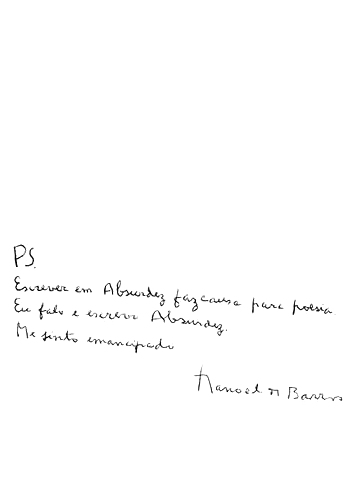 PS.
Escrever em Absurdez faz causa para poesia
Eu falo e escrevo Absurdez.
Me sinto emancipado
Manoel de Barros